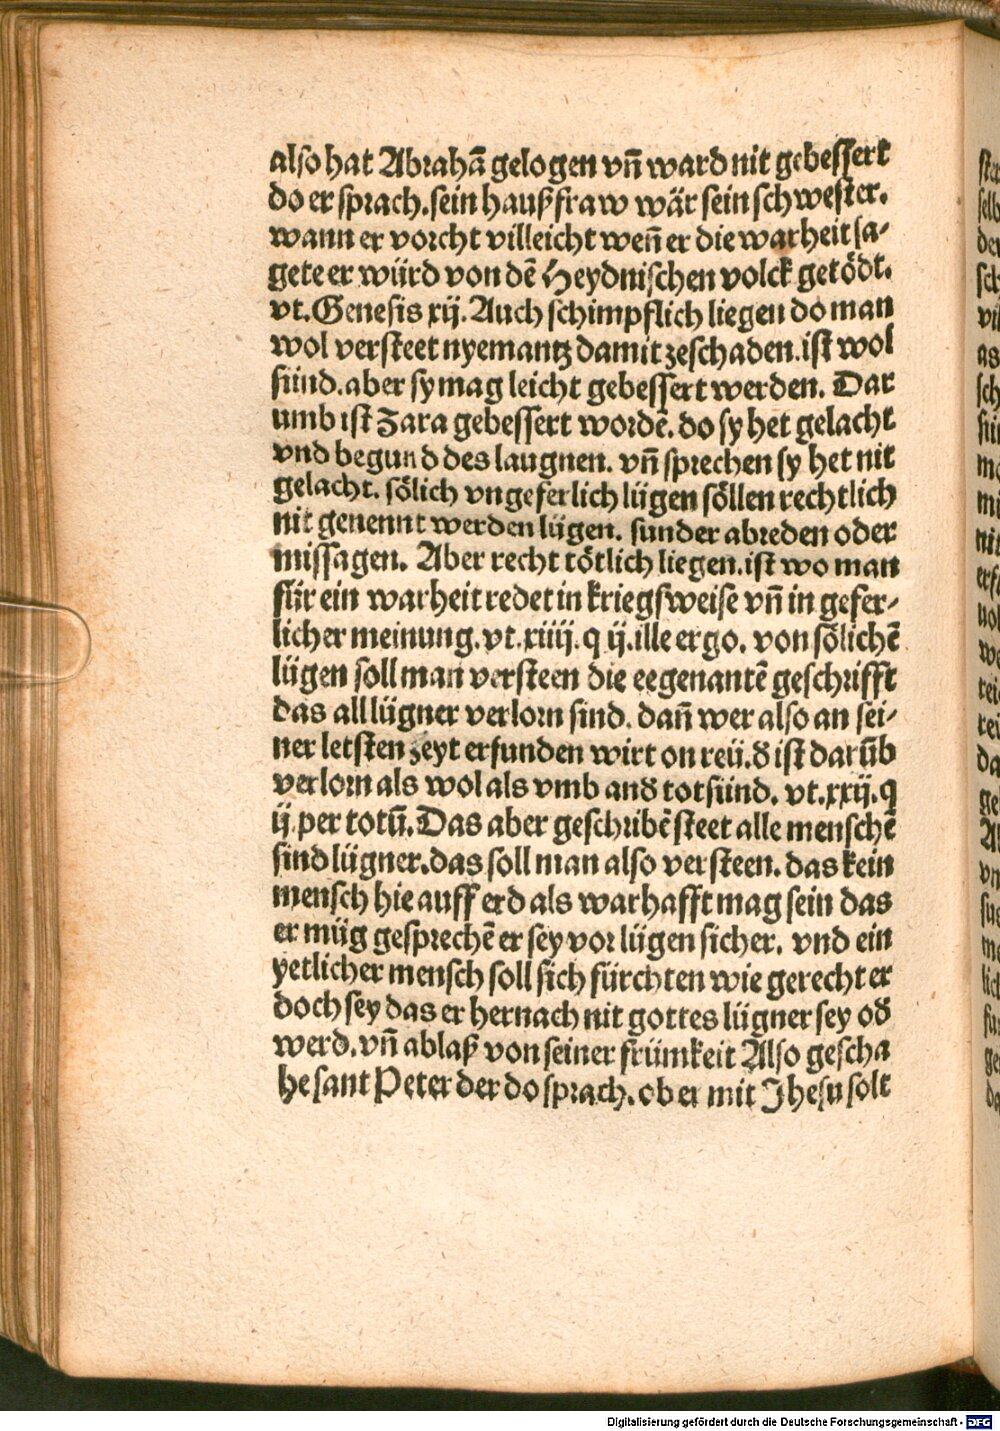 also hat Abrahā gelogen vn̄ ward nit gebessert
do er sprach. sein haußfraw wär sein schwester.
wann er vorcht villeicht wen̄ er die warheit sa-
gete er würd von dē Heydnischen volck getödt.
vt. Genesis xij. Auch schimpflich liegen do man
wol versteet nyemantz damit zeschaden. ist wol
sünd. aber sy mag leicht gebessert werden. Dar
umb ist Zara gebessert wordē. do sy het gelacht
vnd begund des laugnen. vn̄ sprechen sy het nit
gelacht. sölich vngeferlich lügen söllen rechtlich
nit genennt werden lügen. sunder abreden oder
missagen. Aber recht tötlich liegen. ist wo man
für ein warheit redet in kriegsweise vn̄ in gefer-
licher meinung. vt. xiiij. q ij. ille ergo. von sölichē
lügen soll man versteen die eegenantē geschrifft
das all lügner verlorn sind. dan̄ wer also an sei-
ner letsten zeyt erfunden wirt on reü. ð ist darūb
verlorn als wol als vmb anð totsünd. vt. xxij. q
ij. per totū. Das aber geschribē steet alle menschē
sind lügner. das soll man also versteen. das kein
mensch hie auff erd als warhafft mag sein das
er müg gesprechē er sey vor lügen sicher. vnd ein
yetlicher mensch soll sich fürchten wie gerecht er
doch sey das er hernach nit gottes lügner sey oð
werd. vn̄ ablaß von seiner frümkeit Also gescha
he sant Peter der do sprach. ob er mit Jhesu solt
Digitalisierung gefördert durch die Deutsche Forschungsgemeinschaft - DFG